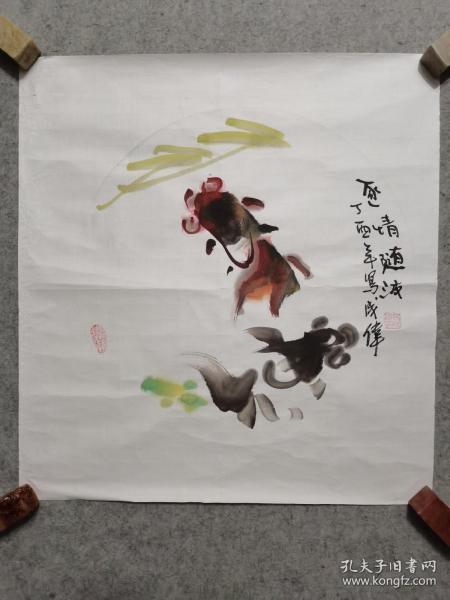 情随波
丁酉年写成伟
孔夫子旧书网
www.kongfz.com